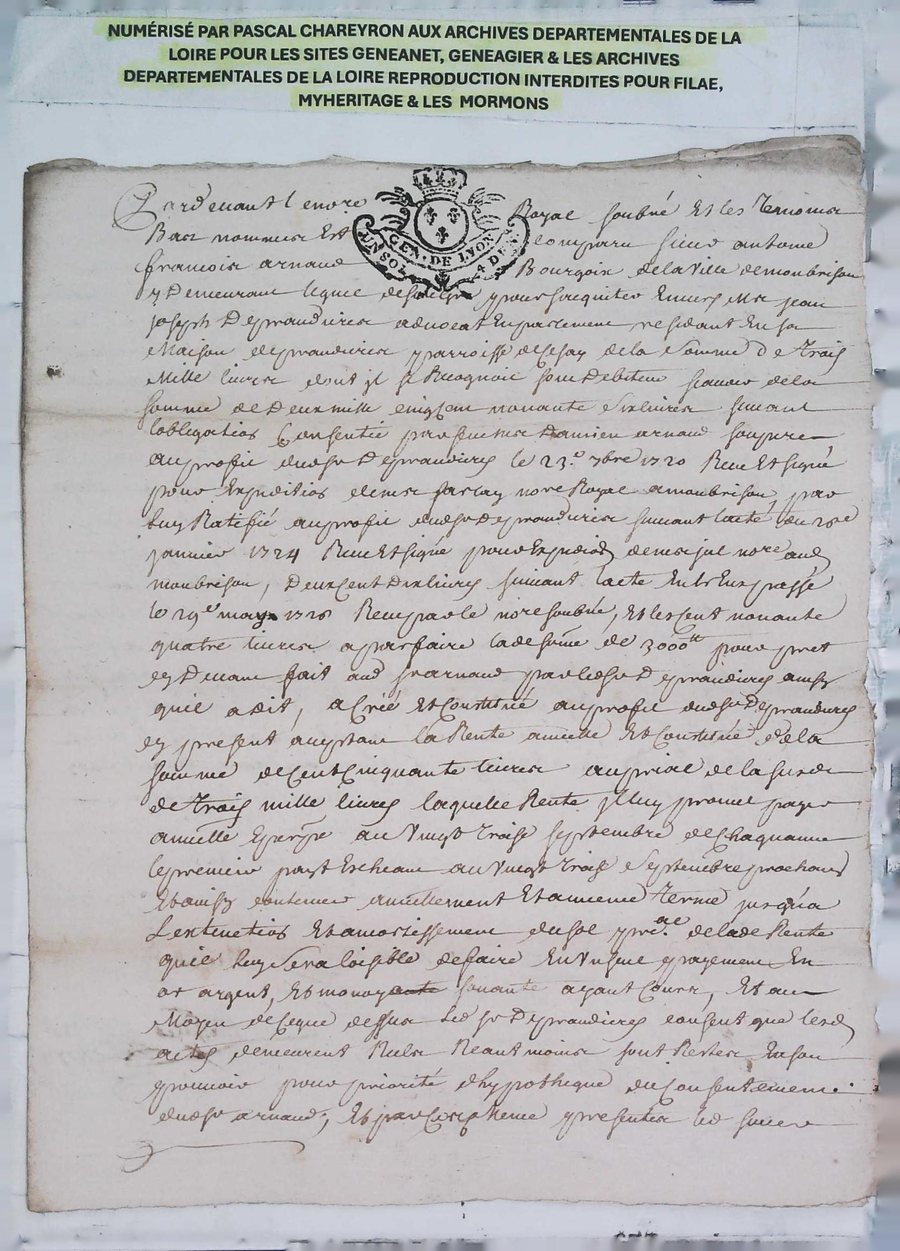 NUMÉRISÉ PAR PASCAL CHAREYRON AUX ARCHIVES DEPARTEMENTALES DE LA
LOIRE POUR LES SITES GENEANET, GENEAGIER & LES ARCHIVES
DEPARTEMENTALES DE LA LOIRE REPRODUCTION INTERDITES POUR FILAE,
MYHERITAGE & LES MORMONS
GEN. DE LYON
UN SOL 4 DEN
Pardevant le nore Royal soubné Et les Temoins
Bas nommes Est comparu sieur antoine
francois arnaud Bourgois de la Ville de monbrison
y Demeurant lequel de pour sacquiter Envers Mr jean
joseph advocat En parlement residant En sa
Maison parroisse de Cesay de la Somme De Trois
Mille livres dont jl se Recognoit son Debiteur scavoir de la
somme de Deux mille cinq cent nonante Six livres suivant
lobligation Consentie par sieur damien arnaud son pere
au profit dud sr le 23.e 7bre 1720 Receu Et signé
pour Expedition de me nore Royal a monbrison, par
luy Ratifié au profit dud sr suivant lacte du
janvier 1724 Receu Et signé pour Expedion de me nore aud
monbrison, Deux Cent Dix livres suivant lacte Entr Eux passé
le 29e may Receu par le nore soubné, Et les Cent nonante
quatre livres a parfaire lade some de 3000tt pour pret
cy Devant fait aud sr arnaud par led sr ainsy
quil a dit, a Créé Et Constitué au profit dud sr
cy present acceptant la Rente annuelle Et Constitué de la
somme de Cent Cinquante livres au prial de la susde
de Trois mille livres laquelle Rente jl luy promet payer
annuellet au Vingt Trois septembre de Chaq anne
le premier payt Escheant au Vingt Trois Septembre prochain
Et ainsy continuer annuellement Et a meme Terme jusqua
Lextinction Et amortissement dud prial de lade Rente
quil luy Sera loisible de faire En Un seul payement En
or argent, Et monoye sonante ayant Cours, Et au
Moyen de Ceque dessus Led sr consent que lesd
actes demeurent Nuls Neantmoins sont Restes En son
pouvoir pour priorité dhypotheque du Consentement
dud sr arnaud; Et par Ces memes presentes led sieur